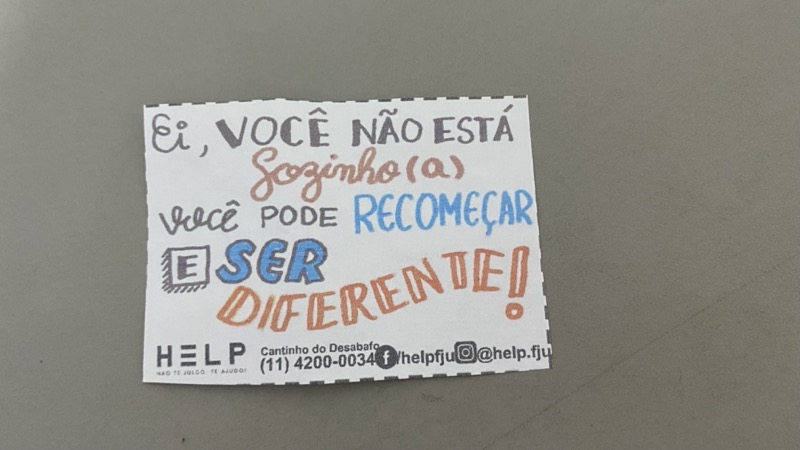 Ei, VOCÊ NÃO ESTÁ
Sozinho(a)
você PODE RECOMEÇAR
E SER
DIFERENTE!
HELP
NÃO TE JULGO, TE AJUDO!
Cantinho do Desabafo
(11) 4200-0034 /helpfju @help.fju